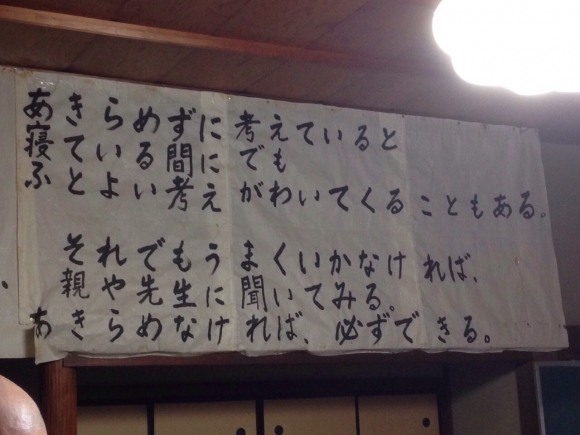 あきらめずに考えていると
寝ているい間にでも
ふとよい考えがわいてくることもある。
それでもうまくいかなければ、
親や先生に聞いてみる。
あきらめなければ、必ずできる。
、